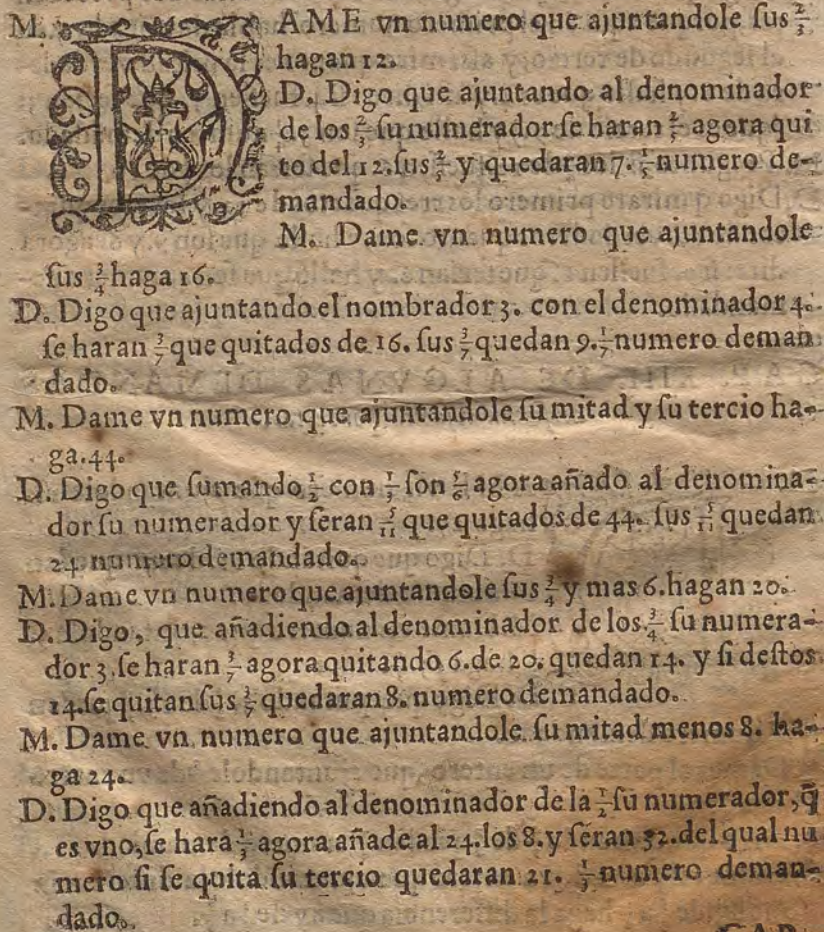 M. DAME vn numero que ajuntandole ſus 2/3
hagan 12.
D. Digo que ajuntando al denominador
de los 2/3 ſu numerador ſe haran 2/5 agora qui
to del 12. ſus 2/5 y quedaran 7. 1/5 numero de-
mandado.
M. Dame vn numero que ajuntandole
ſus 3/4 haga 16.
D. Digo que ajuntando el nombrador 3. con el denominador 4.
ſe haran 3/7 que quitados de 16. ſus 3/7 quedan 9. 1/7 numero deman
dado.
M. Dame vn numero que ajuntandole ſu mitad y ſu tercio ha-
ga. 44.
D. Digo que ſumando 1/2 con 1/3 ſon 5/6 agora añado al denomina-
dor ſu numerador y ſeran 5/11 que quitados de 44. ſus 5/11 quedan
24 numero demandado.
M. Dame vn numero que ajuntandole ſus 3/4 y mas 6. hagan 20.
D. Digo, que añadiendo al denominador de los 3/4 ſu numera-
dor 3. ſe haran 3/7 agora quitando 6. de 20. quedan 14. y ſi deſtos
14. ſe quitan ſus 3/7 quedaran 8. numero demandado.
M. Dame vn numero que ajuntandole ſu mitad menos 8. ha-
ga 24.
D. Digo que añadiendo al denominador de la 1/2 ſu numerador, q̃
es vno, ſe hara 1/3 agora añade al 24. los 8. y ſeran 32. del qual nu
mero ſi ſe quita ſu tercio quedaran 21. 1/3 numero deman-
dado.